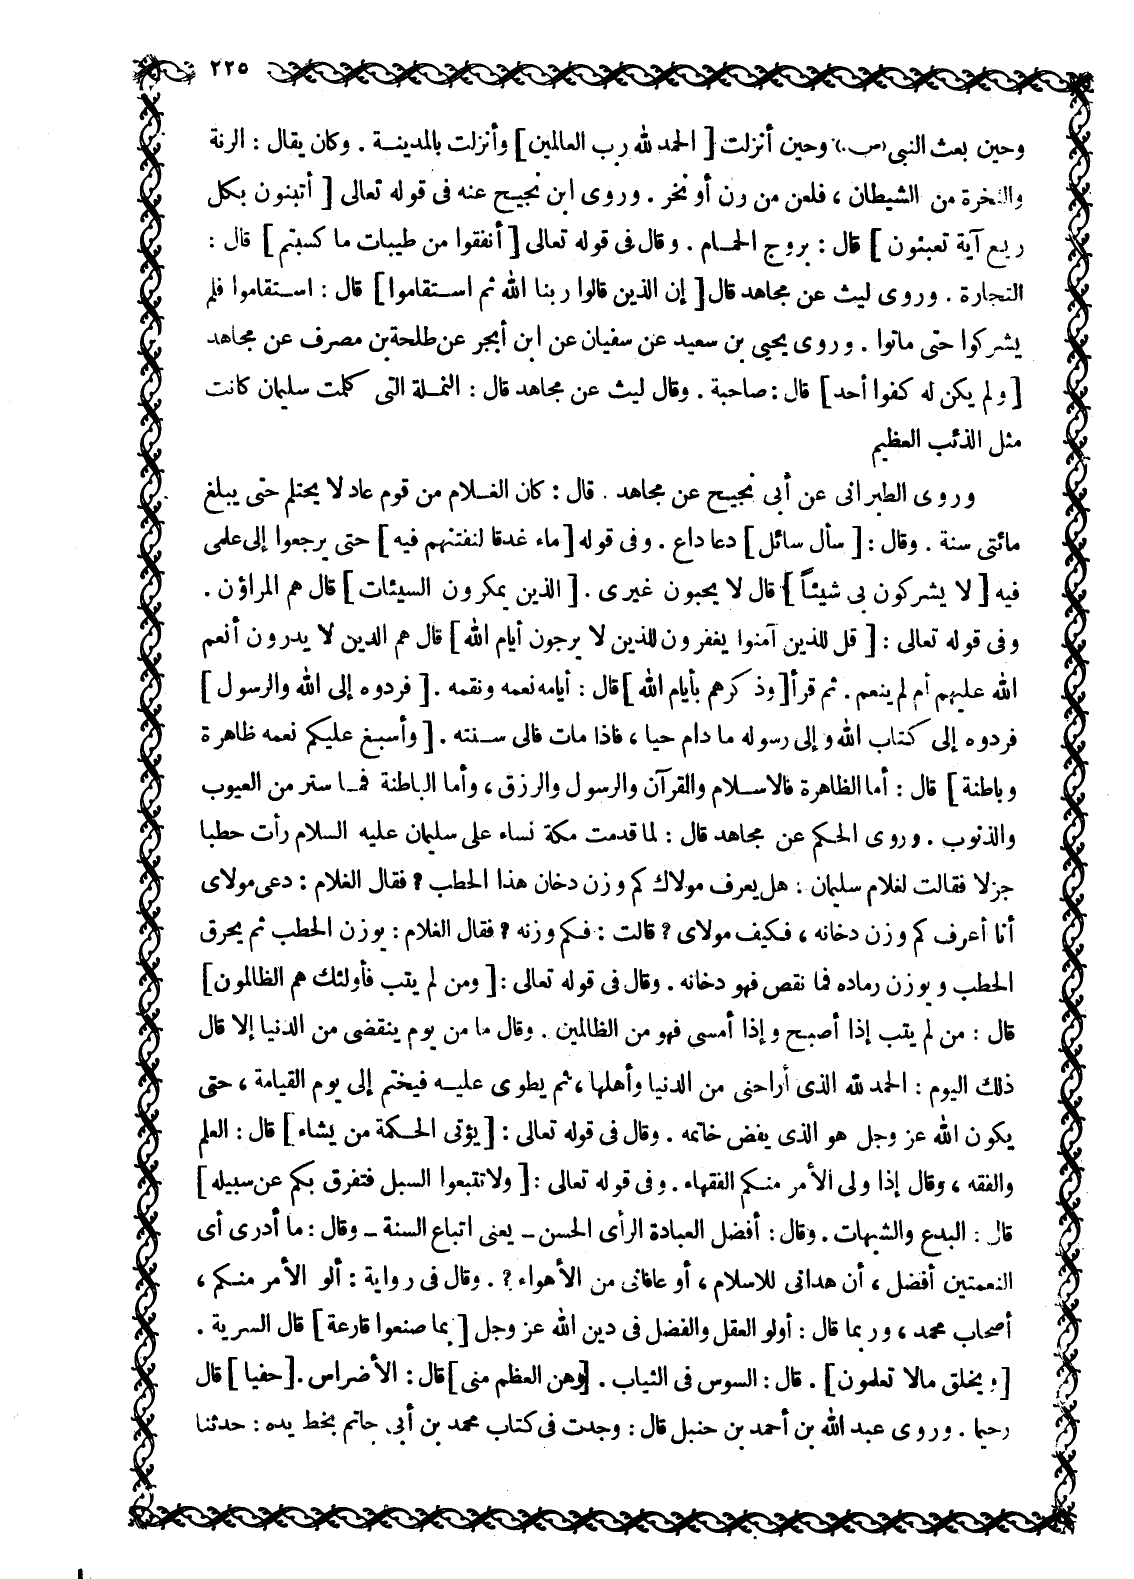 ٢٢٥
وحين بعث النبى (ص.) وحين أنزلت [ الحمد لله رب العالمين ] وأنزلت بالمدينة . وكان يقال : الرنة
والنخرة من الشيطان ، فلعن من رن أو نخر . وروى ابن نجيح عنه فى قوله تعالى [ أتبنون بكل
ريع آية تعبثون ] قال : بروج الحمام . وقال فى قوله تعالى [ أنفقوا من طيبات ما كسبتم ] قال :
التجارة . وروى ليث عن مجاهد قال [ إن الذين قالوا ربنا الله ثم استقاموا ] قال : استقاموا فلم
يشركوا حتى ماتوا . وروى يحيى بن سعيد عن سفيان عن ابن أبجر عن طلحة بن مصرف عن مجاهد
[ ولم يكن له كفوا أحد ] قال : صاحبة . وقال ليث عن مجاهد قال : النملة التى كلمت سليمان كانت
مثل الذئب العظيم
وروى الطبرانى عن أبى نجيح عن مجاهد . قال : كان الغلام من قوم عاد لا يحتلم حتى يبلغ
مائتى سنة . وقال : [ سأل سائل ] دعا داع . وفى قوله [ ماء غدقا لنفتنهم فيه ] حتى يرجعوا إلى علمى
فيه [ لا يشركون بى شيئاً ] قال لا يحبون غيرى . [ الذين يمكرون السيئات ] قال هم المراؤن .
وفى قوله تعالى : [ قل للذين آمنوا يغفرون للذين لا يرجون أيام الله ] قال هم الذين لا يدرون أنعم
الله عليهم أم لم ينعم . ثم قرأ [ وذكرهم بأيام الله ] قال : أيامه نعمه ونقمه . [ فردوه إلى الله والرسول ]
فردوه إلى كتاب الله وإلى رسوله ما دام حيا ، فاذا مات فالى سنته . [ وأسبغ عليكم نعمه ظاهرة
وباطنة ] قال : أما الظاهرة فالاسلام والقرآن والرسول والرزق ، وأما الباطنة فما ستر من العيوب
والذنوب . وروى الحكم عن مجاهد قال : لما قدمت مكة نساء على سليمان عليه السلام رأت حطبا
جزلا فقالت لغلام سليمان : هل يعرف مولاك كم وزن دخان هذا الحطب ? فقال الغلام : دعى مولاى
أنا أعرف كم وزن دخانه ، فكيف مولاى ? قالت : فكم وزنه ? فقال الغلام : يوزن الحطب ثم يحرق
الحطب ويوزن رماده فما نقص فهو دخانه . وقال فى قوله تعالى : [ ومن لم يتب فأولئك هم الظالمون ]
قال : من لم يتب إذا أصبح وإذا أمسى فهو من الظالمين . وقال ما من يوم ينقضى من الدنيا إلا قال
ذلك اليوم : الحمد لله الذى أراحنى من الدنيا وأهلها ، ثم يطوى عليه فيختم إلى يوم القيامة ، حتى
يكون الله عز وجل هو الذى يفض خاتمه . وقال فى قوله تعالى : [ يؤتى الحكمة من يشاء ] قال : العلم
والفقه ، وقال إذا ولى الأمر منكم الفقهاء . وفى قوله تعالى : [ ولا تتبعوا السبل فتفرق بكم عن سبيله ]
قال : البدع والشبهات . وقال : أفضل العبادة الرأى الحسن ـ يعنى اتباع السنة ـ وقال : ما أدرى أى
النعمتين أفضل ، أن هدانى للاسلام ، أو عافانى من الأهواء ? . وقال فى رواية : ألو الأمر منكم ،
أصحاب محمد ، وربما قال : أولو العقل والفضل فى دين الله عز وجل [ بما صنعوا قارعة ] قال السرية .
[ ويخلق مالا تعلمون ] . قال : السوس فى الثياب . [ وهن العظم منى ] قال : الأضراس . [ حفيا ] قال
رحيما . وروى عبد الله بن أحمد بن حنبل قال : وجدت فى كتاب محمد بن أبى حاتم بخط يده : حدثنا